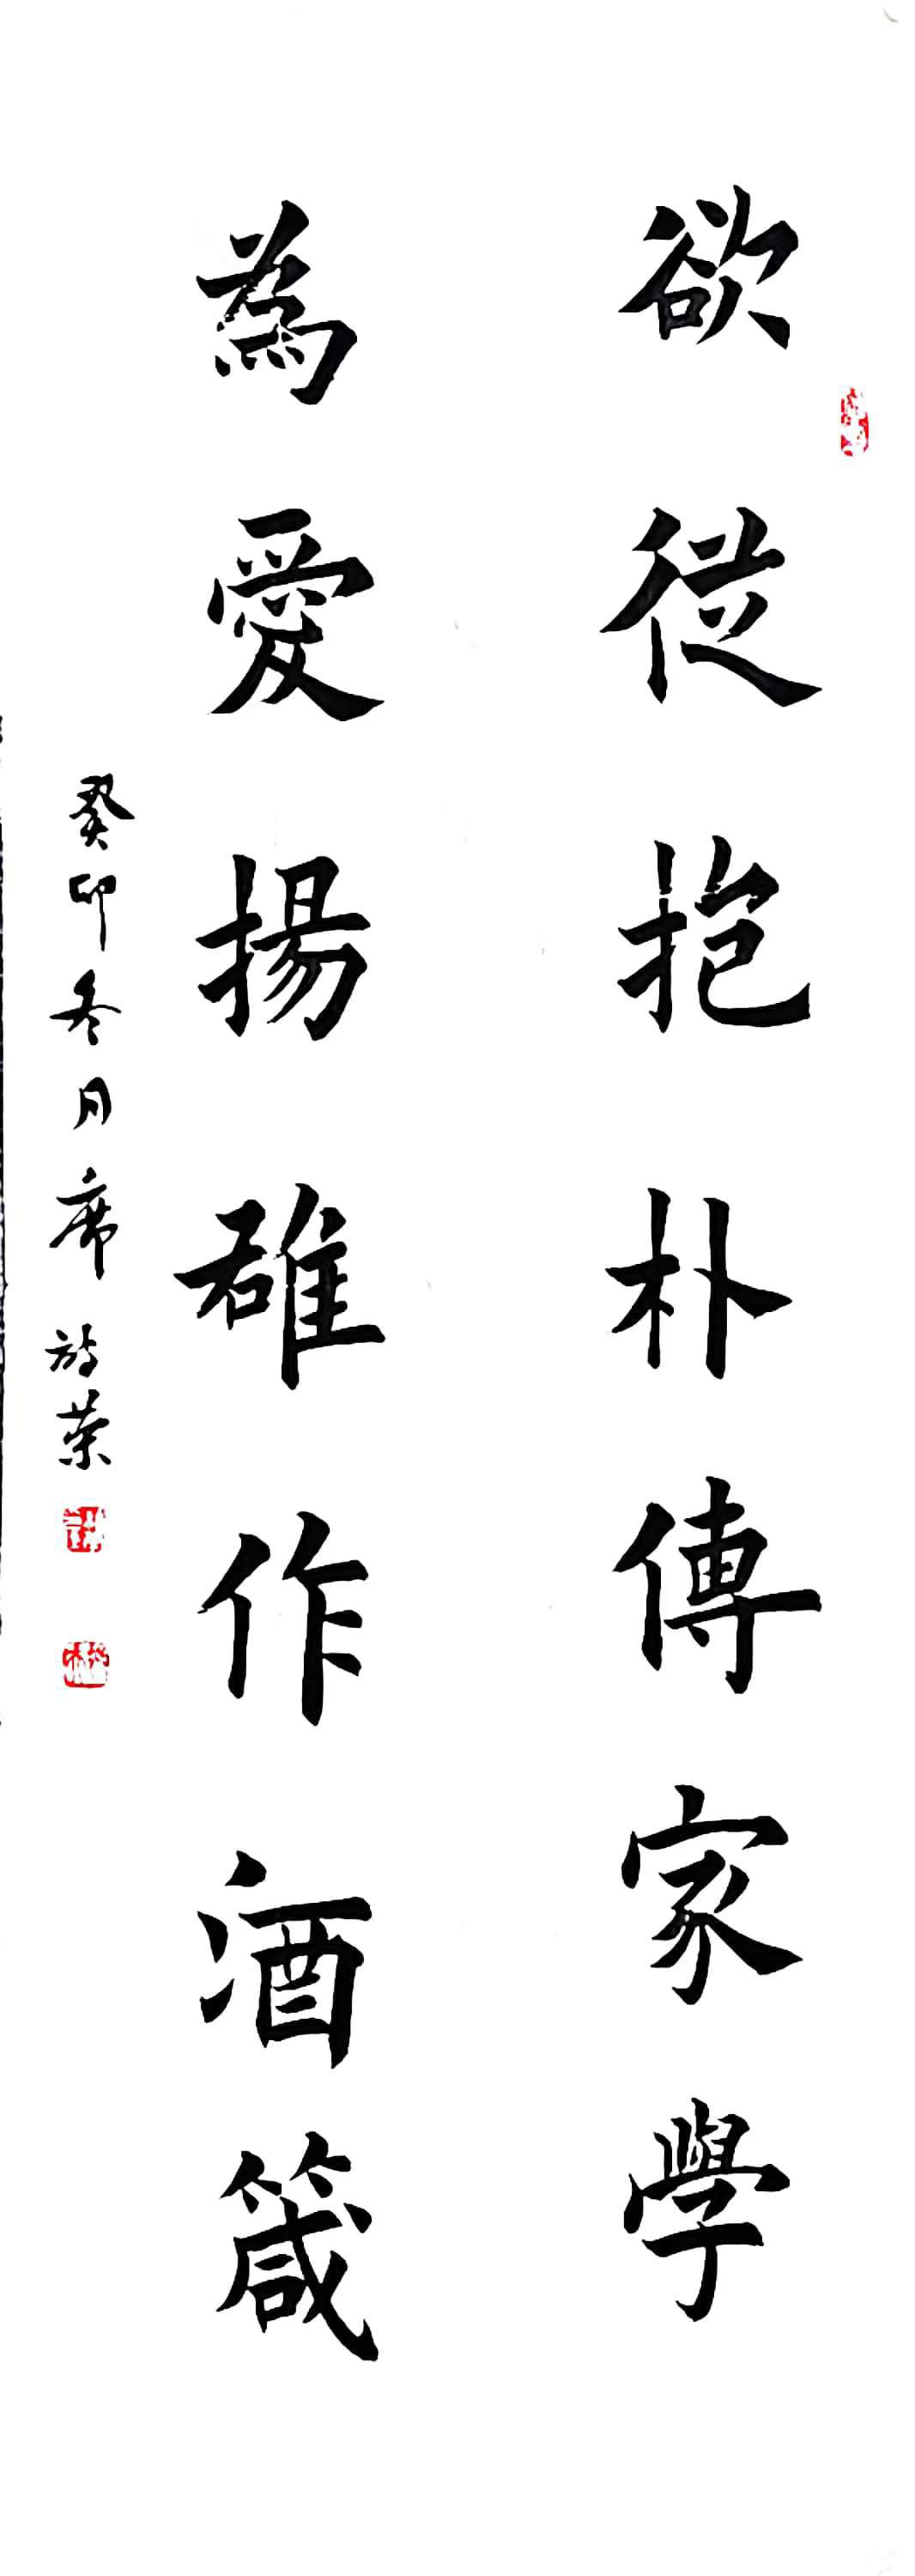 欲從抱朴傳家學
為愛揚雄作酒箴
癸卯冬月席放榮